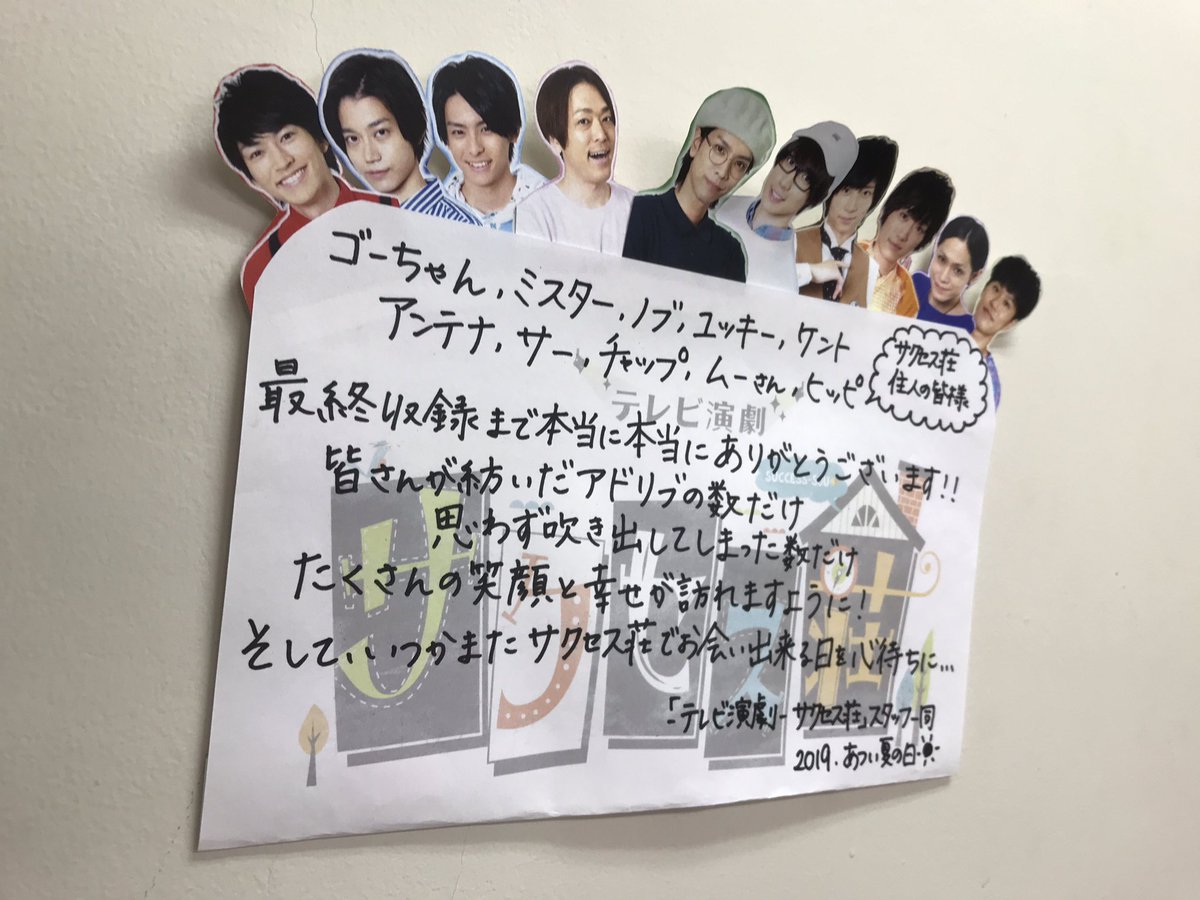 ゴーちゃん,ミスター,ノブ,ユッキー,ケント
アンテナ,サー,チャップ,ムーさん,ヒッピ
サクセス荘
住人の皆様
テレビ演劇
最終収録まで本当に本当にありがとうございます!!
皆さんが紡いだアドリブの数だけ
SUCCESS-SOU
思わず吹き出してしまった数だけ
たくさんの笑顔と幸せが訪れますように!
サクセス荘
そして、いつかまたサクセス荘でお会い出来る日を心待ちに...
「テレビ演劇 サクセス荘」スタッフ一同
2019.あつい夏の日